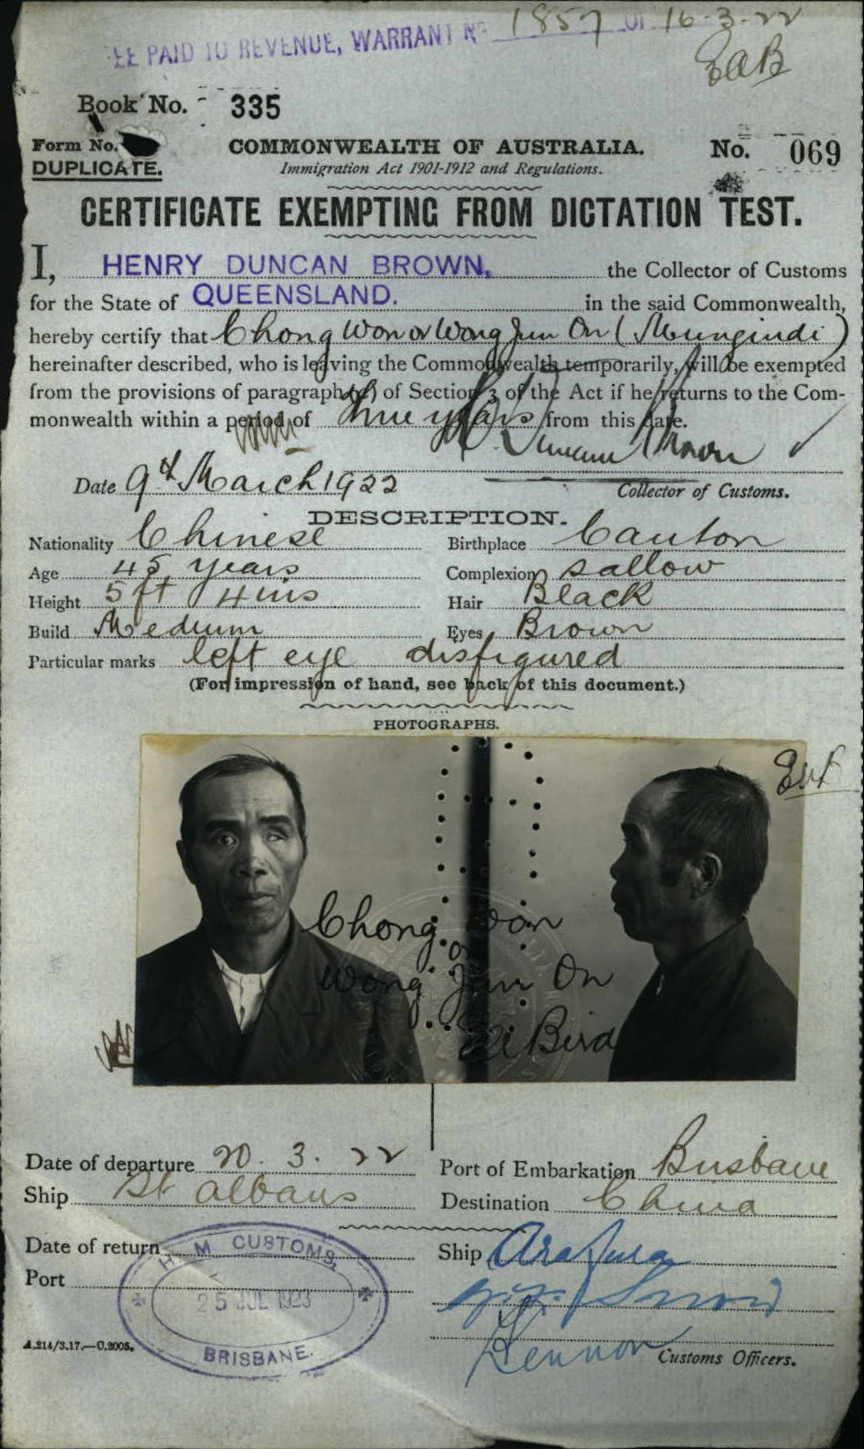 FEE PAID TO REVENUE, WARRANT No 1857 OF 16-3-22
Book No. - 335
Form No.
DUPLICATE.
COMMONWEALTH OF AUSTRALIA.
Immigration Act 1901-1912 and Regulations.
No. 069
CERTIFICATE EXEMPTING FROM DICTATION TEST.
I, HENRY DUNCAN BROWN, the Collector of Customs
for the State of QUEENSLAND. in the said Commonwealth,
hereby certify that Chong Won or Wong Jun On (Mungindi)
hereinafter described, who is leaving the Commonwealth temporarily, will be exempted
from the provisions of paragraph (a) of Section 3 of the Act if he returns to the Com-
monwealth within a period of three years from this date.
H Duncan Brown
Date 9th March 1922
Collector of Customs.
DESCRIPTION.
Nationality Chinese Birthplace Canton
Age 45 years Complexion sallow
Height 5 ft 4 ins Hair Black
Build Medium Eyes Brown
Particular marks left eye disfigured
(For impression of hand, see back of this document.)
PHOTOGRAPHS.
Chong Won
or
Wong Jun On
Bird
Date of departure 20. 3. 22 Port of Embarkation Brisbane
Ship St Albans Destination China
Date of return Ship Arafura
Port
H. M. CUSTOMS,
25 JUL 1923
BRISBANE.
Lennon
A.214/3.17.—C.2005.
Customs Officers.